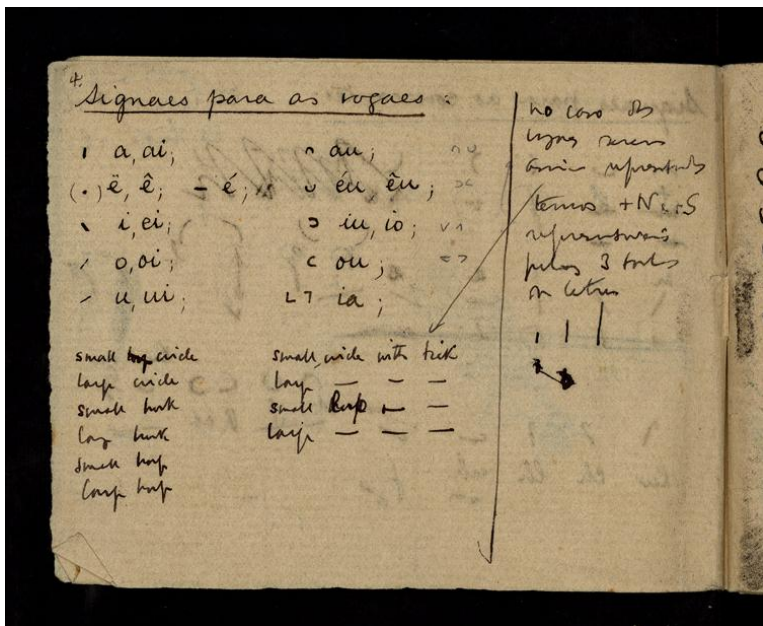 4.
Signaes para as vogaes :
ı a, ai;
(.) ë, ê; – é;
\ i, ei;
/ o, oi;
/ u, ui;
∩ au;
∪ éu, êu;
⊃ iu, io;
⊂ ou;
L ㄱ ia;
small circle
large circle
small hook
large hook
small loop
large loop
small circle with tick
large — — —
small loop — —
large — — —
no caso das
vogaes serem
assim representadas
temos + N
pelos 3